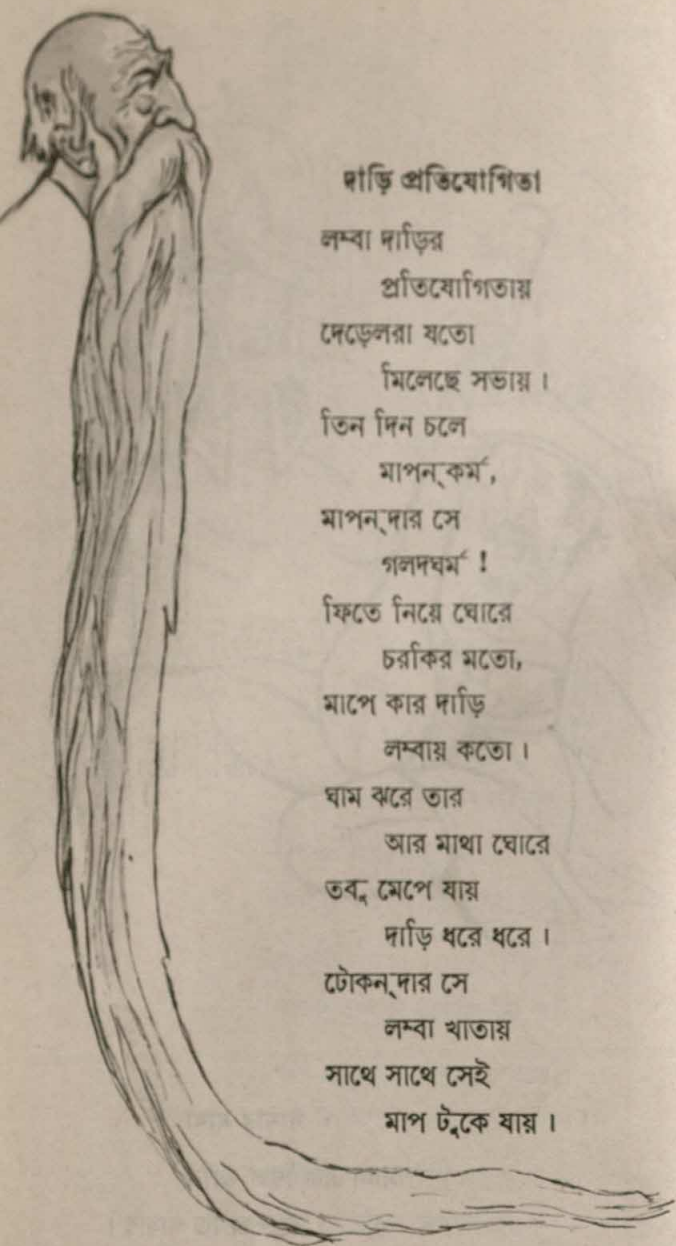 দাড়ি প্রতিযোগিতা
লম্বা দাড়ির
প্রতিযোগিতায়
দেড়েলরা যতো
মিলেছে সভায়।
তিন দিন চলে
মাপন্‌কর্ম,
মাপন্‌দার সে
গলদঘর্ম !
ফিতে নিয়ে ঘোরে
চরকির মতো,
মাপে কার দাড়ি
লম্বায় কতো।
ঘাম ঝরে তার
আর মাথা ঘোরে
তবু মেপে যায়
দাড়ি ধরে ধরে।
টোকন্‌দার সে
লম্বা খাতায়
সাথে সাথে সেই
মাপ টুকে যায়।